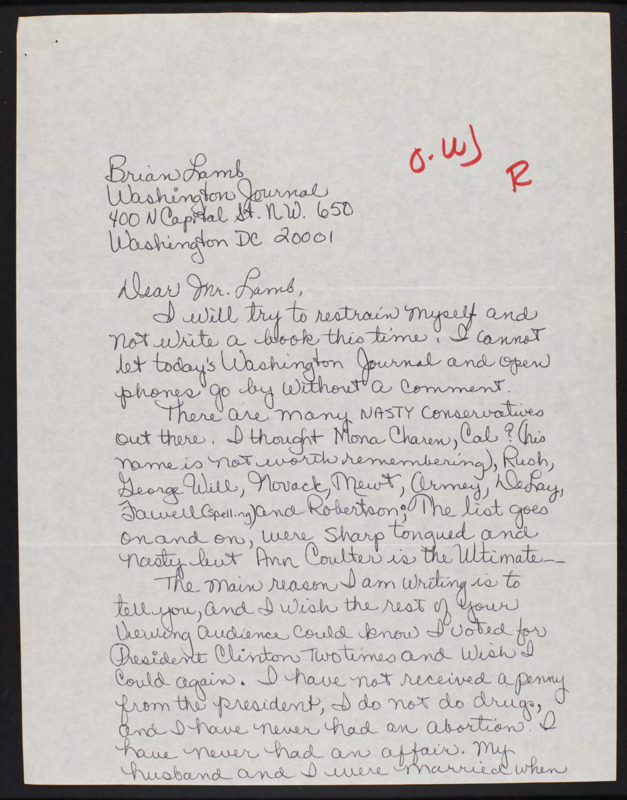 O.WJ
R
Brian Lamb
Washington Journal
400 N Capital St. N.W. 650
Washington DC 20001
Dear Mr. Lamb,
I will try to restrain myself and
not write a book this time. I cannot
let today's Washington Journal and open
phones go by without a comment.
There are many NASTY conservatives
out there. I thought Mona Charen, Cal? (his
name is not worth remembering), Rush,
George Will, Novack, Newt, Armey, DeLay,
Fawell (spelling) and Robertson; The list goes
on and on, were sharp tongued and
nasty but Ann Coulter is the Ultimate—
The main reason I am writing is to
tell you, and I wish the rest of your
viewing audience could know I voted for
President Clinton Two times and wish I
could again. I have not received a penny
from the president, I do not do drugs,
and I have never had an abortion. I
have never had an affair. My
husband and I were married when